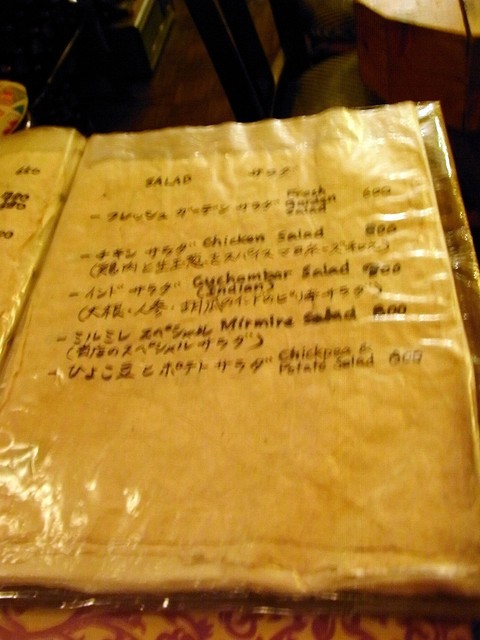 SALAD サラダ
- フレッシュ ガーデン サラダ Fresh Garden Salad 600
- チキン サラダ Chicken Salad 800
(鶏肉と生玉葱をスパイスマヨネーズ和え)
- インド サラダ Cuchumbar Salad (Indian)
(大根・人参・胡瓜のインドのピリキサラダ)
- ミルミレ スペシャル Mirmire Salad 800
(当店のスペシャルサラダ)
- ひよこ豆とポテトサラダ Chickpea & Potato Salad 600